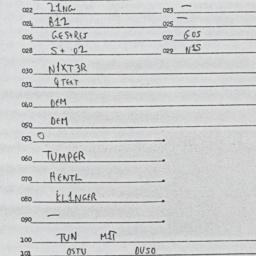 022 21NG 023 —
024 B12 025 —
026 GESTREJ 027 GOS
028 S+ 02 029 N1S
030 N1XT3R
031 QTEXT
040 DEM
050 DEM
051 O
060 TUMPER
070 HENTL
080 KL1NGER
090 —
100 TUN MIT
101 OSTU DUSO